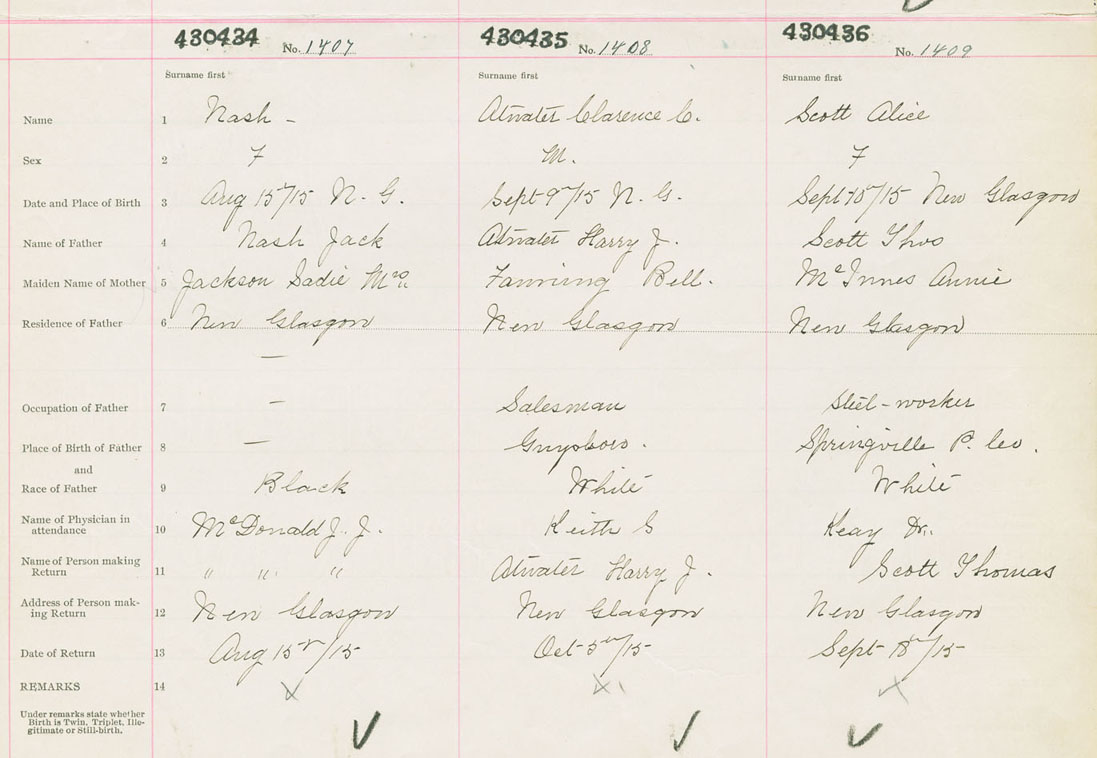 430434 No. 1407 430435 No. 1408 430436 No. 1409
Surname first Surname first Surname first
Name 1 Nash - Atwater Clarence C. Scott Alice
Sex 2 F M. F
Date and Place of Birth 3 Aug 15/15 N. G. Sept 9th/15 N. G. Sept 15/15 New Glasgow
Name of Father 4 Nash Jack Atwater Harry J. Scott Thos
Maiden Name of Mother 5 Jackson Sadie Mrs Fanning Bell. McInnes Annie
Residence of Father 6 New Glasgow New Glasgow New Glasgow
—
Occupation of Father 7 — Salesman Steel-worker
Place of Birth of Father 8 — Guysboro. Springville P. Co.
and
Race of Father 9 Black White White
Name of Physician in
attendance 10 McDonald J. J. Keith S Keay Dr.
Name of Person making
Return 11 " " " Atwater Harry J. Scott Thomas
Address of Person mak-
ing Return 12 New Glasgow New Glasgow New Glasgow
Date of Return 13 Aug 15/15 Oct 5th/15 Sept 18th/15
REMARKS 14
Under remarks state whether
Birth is Twin, Triplet, Ille-
gitimate or Still-birth.